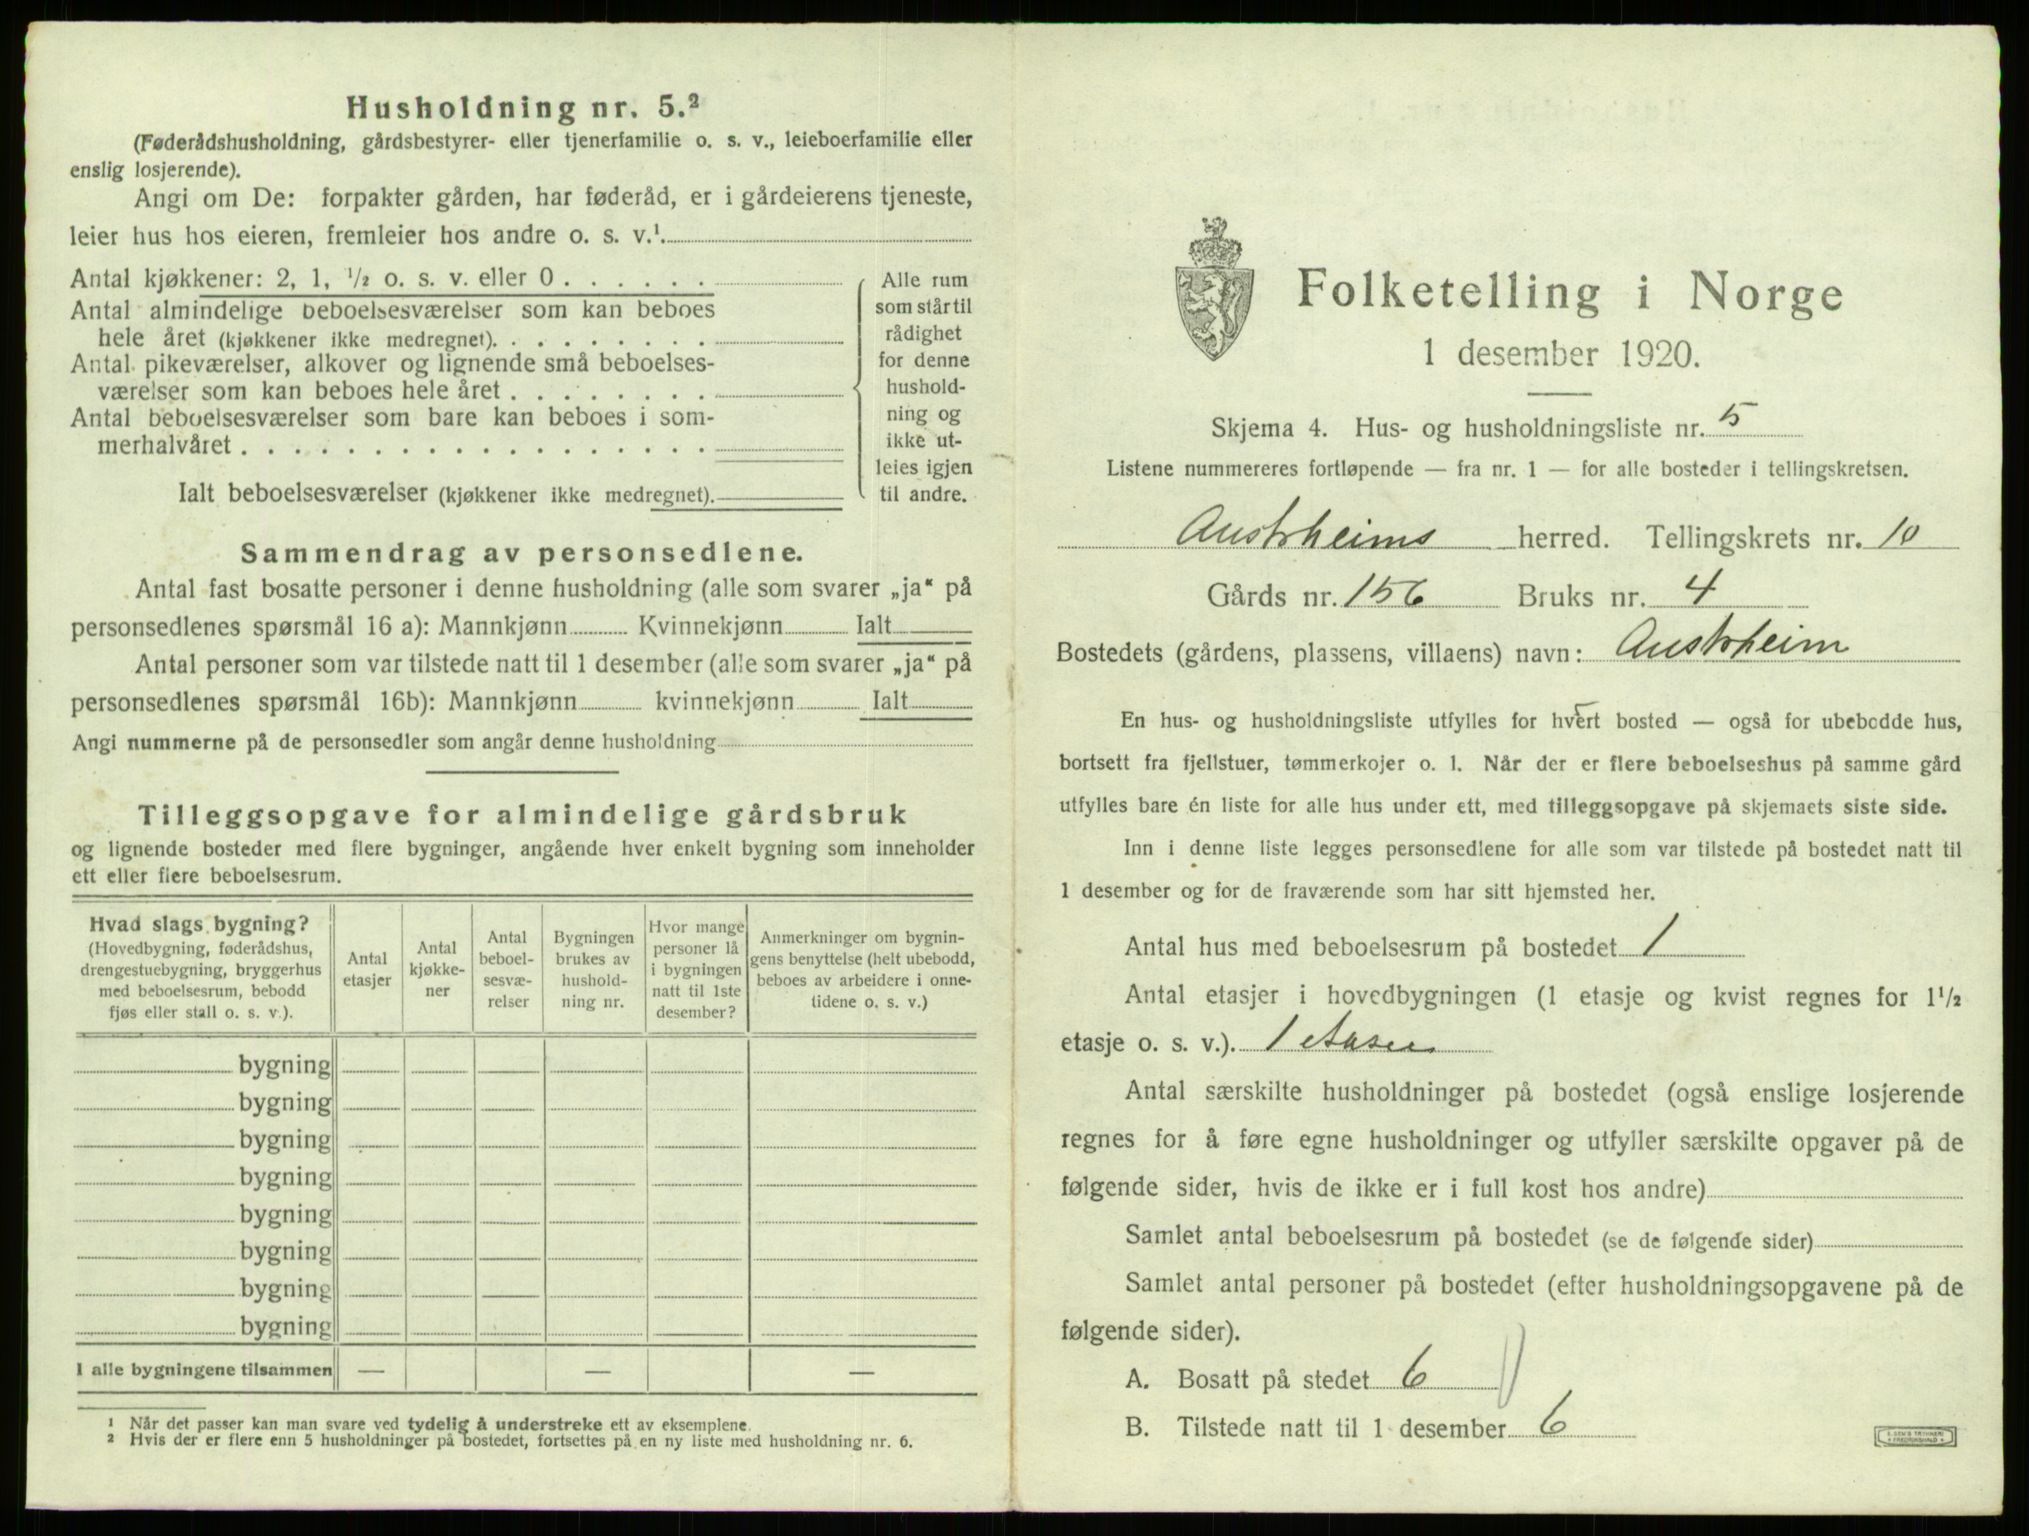 Husholdning nr. 5.²
(Føderådshusholdning, gårdsbestyrer- eller tjenerfamilie o. s. v., leieboerfamilie eller
enslig losjerende).
Angi om De: forpakter gården, har føderåd, er i gårdeierens tjeneste,
leier hus hos eieren, fremleier hos andre o. s. v.¹
Antal kjøkkener: 2, 1, ½ o. s. v. eller 0
Antal almindelige beboelsesværelser som kan beboes
hele året (kjøkkener ikke medregnet)
Antal pikeværelser, alkover og lignende små beboelses-
værelser som kan beboes hele året
Antal beboelsesværelser som bare kan beboes i som-
merhalvåret
Ialt beboelsesværelser (kjøkkener ikke medregnet).
Alle rum
som står til
rådighet
for denne
hushold-
ning og
ikke ut-
leies igjen
til andre.
Sammendrag av personsedlene.
Antal fast bosatte personer i denne husholdning (alle som svarer „ja“ på
personsedlenes spørsmål 16 a): Mannkjønn Kvinnekjønn Ialt
Antal personer som var tilstede natt til 1 desember (alle som svarer „ja“ på
personsedlenes spørsmål 16b): Mannkjønn kvinnekjønn Ialt
Angi nummerne på de personsedler som angår denne husholdning
Tilleggsopgave for almindelige gårdsbruk
og lignende bosteder med flere bygninger, angående hver enkelt bygning som inneholder
ett eller flere beboelsesrum.
Hvad slags bygning?
(Hovedbygning, føderådshus,
drengestuebygning, bryggerhus
med beboelsesrum, bebodd
fjøs eller stall o. s. v.).
Antal
etasjer
Antal
kjøkke-
ner
Antal
beboel-
sesvæ-
relser
Bygningen
brukes av
hushold-
ning nr.
Hvor mange
personer lå
i bygningen
natt til 1ste
desember?
Anmerkninger om bygnin-
gens benyttelse (helt ubebodd,
beboes av arbeidere i onne-
tidene o. s. v.)
bygning
bygning
bygning
bygning
bygning
bygning
bygning
bygning
I alle bygningene tilsammen — — —
¹ Når det passer kan man svare ved tydelig å understreke ett av eksemplene.
² Hvis der er flere enn 5 husholdninger på bostedet, fortsettes på en ny liste med husholdning nr. 6.
Folketelling i Norge
1 desember 1920.
Skjema 4. Hus- og husholdningsliste nr. 5
Listene nummereres fortløpende — fra nr. 1 — for alle bosteder i tellingskretsen.
Austrheims herred. Tellingskrets nr. 10
Gårds nr. 156 Bruks nr. 4
Bostedets (gårdens, plassens, villaens) navn: Austrheim
En hus- og husholdningsliste utfylles for hvert bosted — også for ubebodde hus,
bortsett fra fjellstuer, tømmerkojer o. l. Når der er flere beboelseshus på samme gård
utfylles bare én liste for alle hus under ett, med tilleggsopgave på skjemaets siste side.
Inn i denne liste legges personsedlene for alle som var tilstede på bostedet natt til
1 desember og for de fraværende som har sitt hjemsted her.
Antal hus med beboelsesrum på bostedet 1
Antal etasjer i hovedbygningen (1 etasje og kvist regnes for 1½
etasje o. s. v.). 1
Antal særskilte husholdninger på bostedet (også enslige losjerende
regnes for å føre egne husholdninger og utfyller særskilte opgaver på de
følgende sider, hvis de ikke er i full kost hos andre)
Samlet antal beboelsesrum på bostedet (se de følgende sider)
Samlet antal personer på bostedet (efter husholdningsopgavene på de
følgende sider).
A. Bosatt på stedet 6
B. Tilstede natt til 1 desember 6